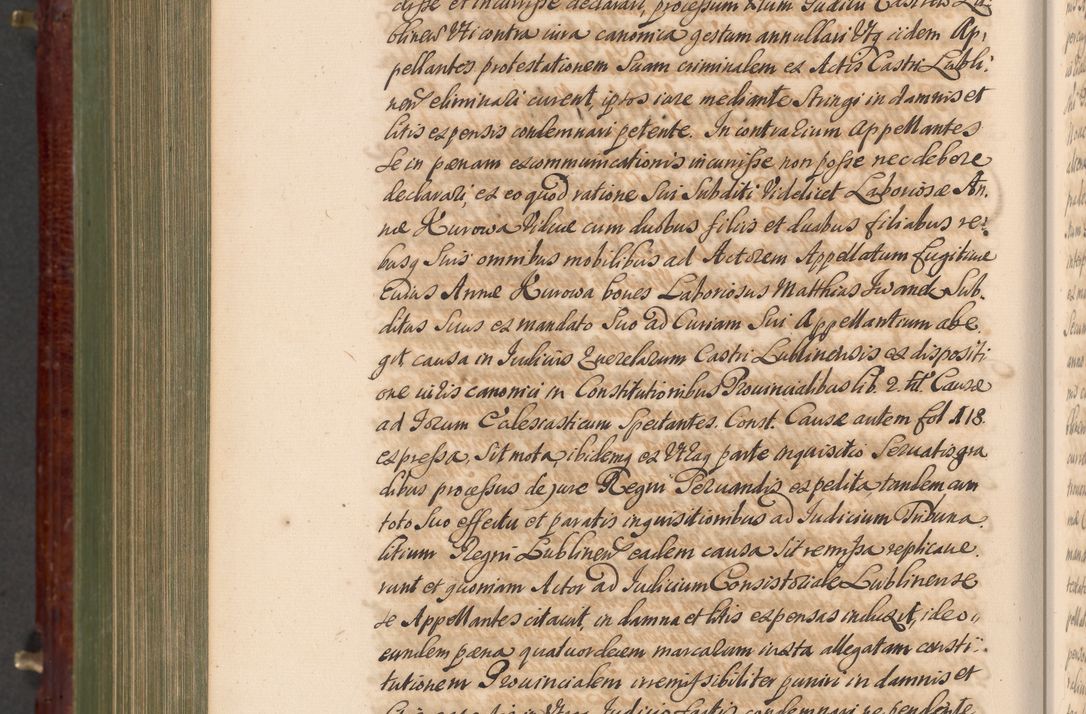 cisse et incurisse declarari, processum Illum Judicii Castren. Lu
blinen. Uti contra iura canonica gestum annullari Utq iidem Ap,
pellantes protestationem Suam criminalem ex Actis Castri Lubli:
nen. eliminari curent, ipsos iure mediante Stringi in damnis et
litis expensis condemnari petente. In contrarium Appellantes
se in pænam excommunicationis incurrisse non posse nec debere
declarari, ex eo quod ratione Sui Subditi Videlicet Laboriosæ An,
næ Kurowa Viduæ cum duobus filiis et duabus filiabus re:
busq Suis omnibus mobilibus ad Actorem Appellatum fugitivæ
cuius Annæ Kurowa boues Laboriosus Matthias Iwanek Sub.
ditus Suus ex mandato Suo ad Curiam Sui Appellantium abe.
git, causa in Iudiciis Querelarum Castri Lublinensis ex dispositi
one iuris canonici in Constitutionibus Prouincialibus lib. 2. tit. Causæ
ad Forum Eclesiasticum Spectantes. Const. Causæ autem fol. 118.
expressa, Sit mota, ibidemq ex Utraq parte inquisitio Seruatis gra
dibus processus de jure Regni Seruandis expedita, tandem cum
toto Suo effectu et paratis inquisitionibus ad Iudicium Tribuna.
litium Regni Lublinen. eadem causa Sit remissa replicaue.
runt et quoniam Actor ad Iudicium Consistoriale Lublinense
se Appellantes citauit, in damna et litis expensas induxit, ideo,
eundem pæna quatuordecem marcarum iuxta allegatam consti:
tutionem Prouincialem irremissibiliter puniri in damnis et